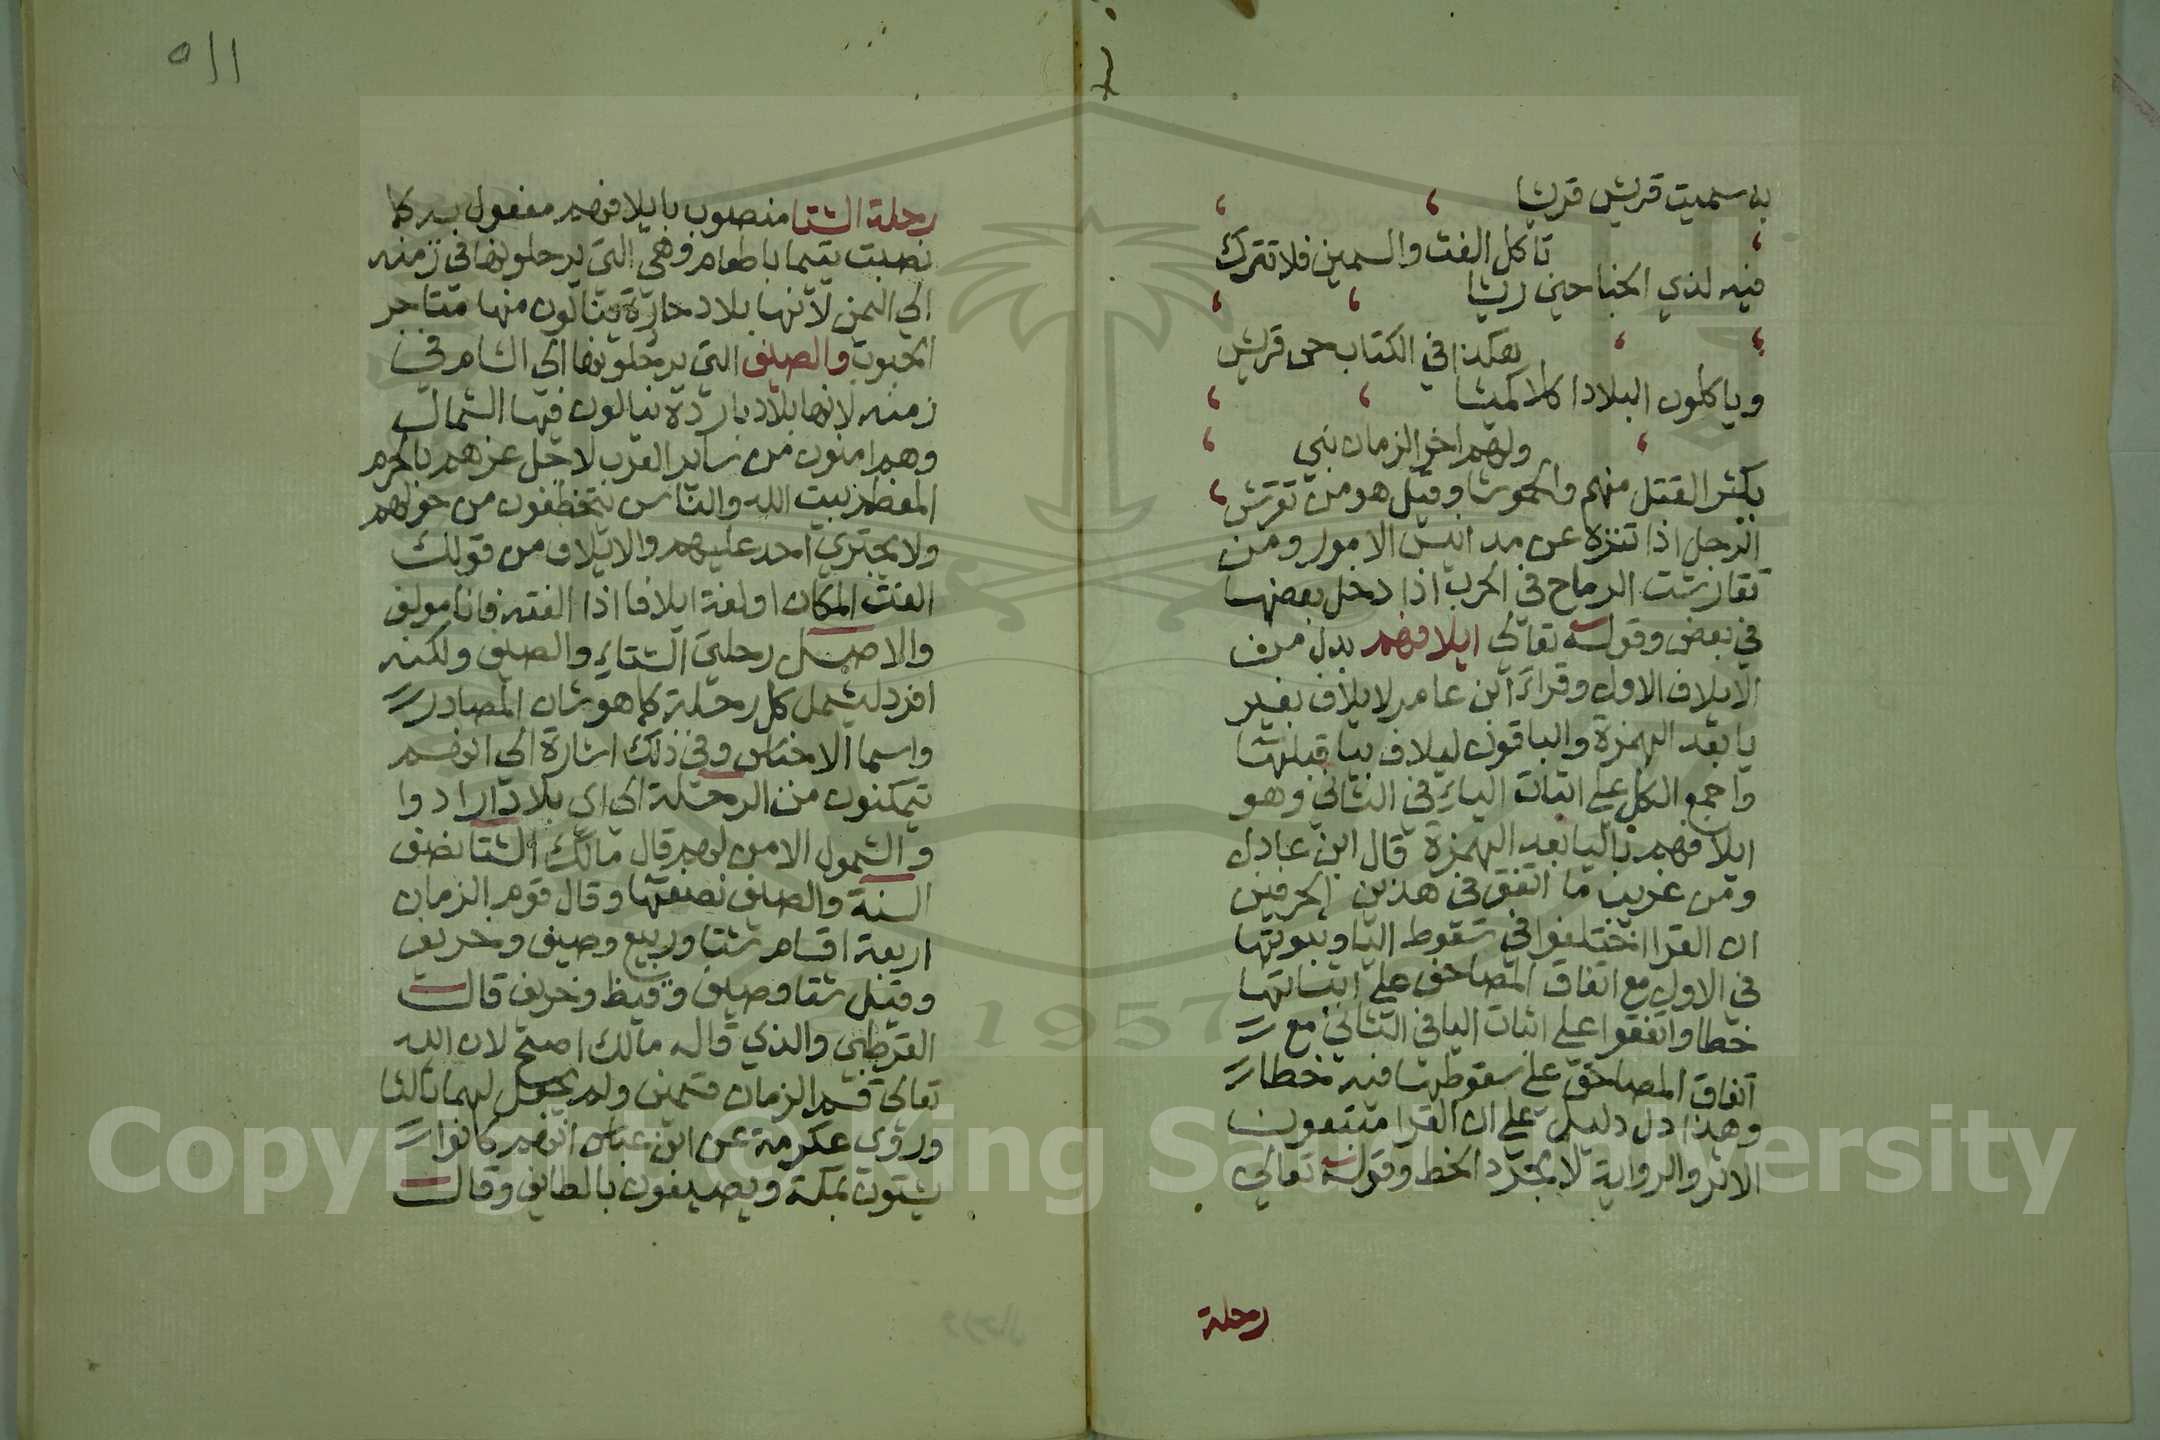 به سميت قريش قريشا
تاكل الغث والسمين فلا تترك
فيه لذي الجناحين ريشا
هكذا في الكتاب حى قريش
وياكلون البلادا كلا كميشا
ولهم اخر الزمان نبي
يكثر القتل منهم والخموشا وقيل هو من تقرش
الرجل اذا تنزه عن مدانيس الامور ومن
تقارشت الرماح في الحرب اذا دخل بعضها
في بعض وقوله تعالي ايلافهم بدل من
الايلاف الاول وقراء ابن عامر لالاف بغير
يا بعد الهمزة والباقون ليلاف بيا قبلها
واجمع الكل علي اثبات الياء في الثاني وهو
ايلافهم باليا بعد الهمزة قال ابن عادل
ومن غريب ما اتفق في هذين الحرفين
ان القرا اختلفوا في سقوط اليا وثبوتها
في الاول مع اتفاق المصاحف علي اثباتها
خطا واتفقوا علي اثبات اليا في الثاني مع
اتفاق المصاحف علي سقوطها فيه خطا
وهذا دل دليل علي ان القرا متبعون
الاثر والرواية لا مجرد الخط وقوله تعالي
رحلة
٥١١
رحلة الشتا منصوب بايلافهم مفعول به كما
نصبت يتيما باطعام وهي التي يرحلونها في زمنه
الي اليمن لانها بلاد حارة ينالون منها متاجر
الحبوب والصيف التي يرحلونها الي الشام في
زمنه لانها بلاد باردة ينالون فيها الشمال
وهم امنون من ساير العرب لاجل عزهم بالحرم
المعظم بيت الله والناس يتخطفون من حولهم
ولا يجتري احد عليهم والايلاف من قولك
الفت المكان اولفه ايلافا اذا الفته فانا مولف
والاصل رحلتي الشتاء والصيف ولكنه
افرد ليشمل كل رحلة كما هو شان المصادر
واسما الاجناس وفي ذلك اشارة الي انهم
يتمكنون من الرحلة الي اي بلاد ارادوا
والشمول الامن لهم قال مالك الشتا نصف
السنة والصيف نصفها وقال قوم الزمان
اربعة اقسام شتا وربيع وصيف وخريف
وقيل شتا وصيف وقيظ وخريف قال
القرطبي والذي قاله مالك اصح لان الله
تعالي قسم الزمان قسمين ولم يجعل لهما ثالثا
وروى عكرمة عن ابن عباس انهم كانوا
يشتون بمكة ويصيفون بالطايف وقال
1957
Copyright © King Saud University